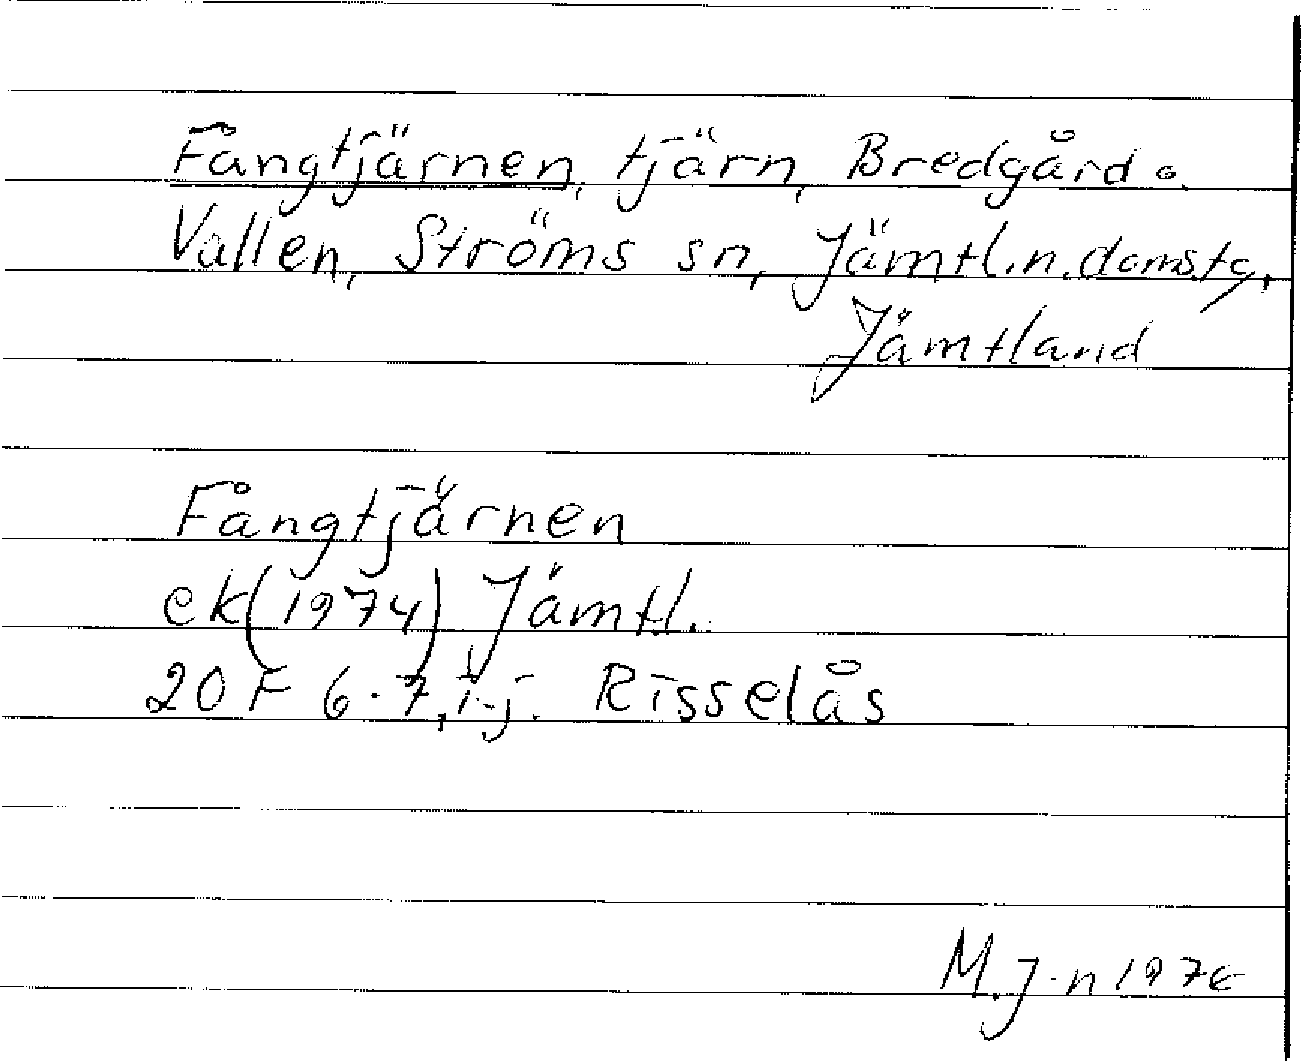 Fångtjärnen, tjärn, Bredgård o.
Vallen, Ströms sn, Jämtl.n.domstg,
Jämtland
Fångtjärnen
ek(1974) Jämtl.
20 F 6-7, i-j. Risselås
M.J-n 1976